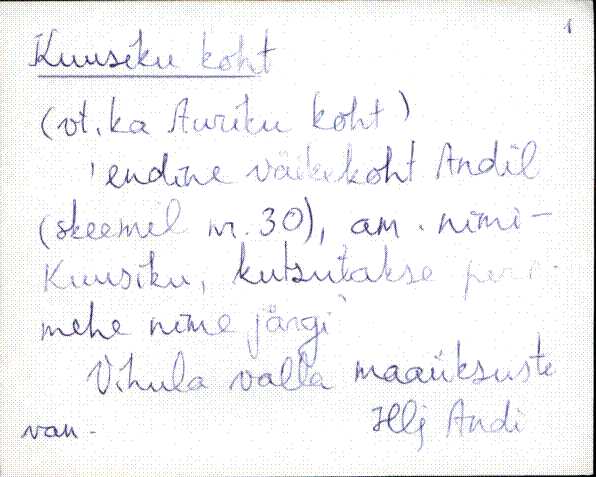 1
Kuusiku koht
(vt. ka Auriku koht)
'endine väikekoht Andil
(skeemil nr. 30), am. nimi -
Kuusiku, kutsutakse pere-
mehe nime järgi'
Vihula valla maaüksuste
van. Hlj Andi